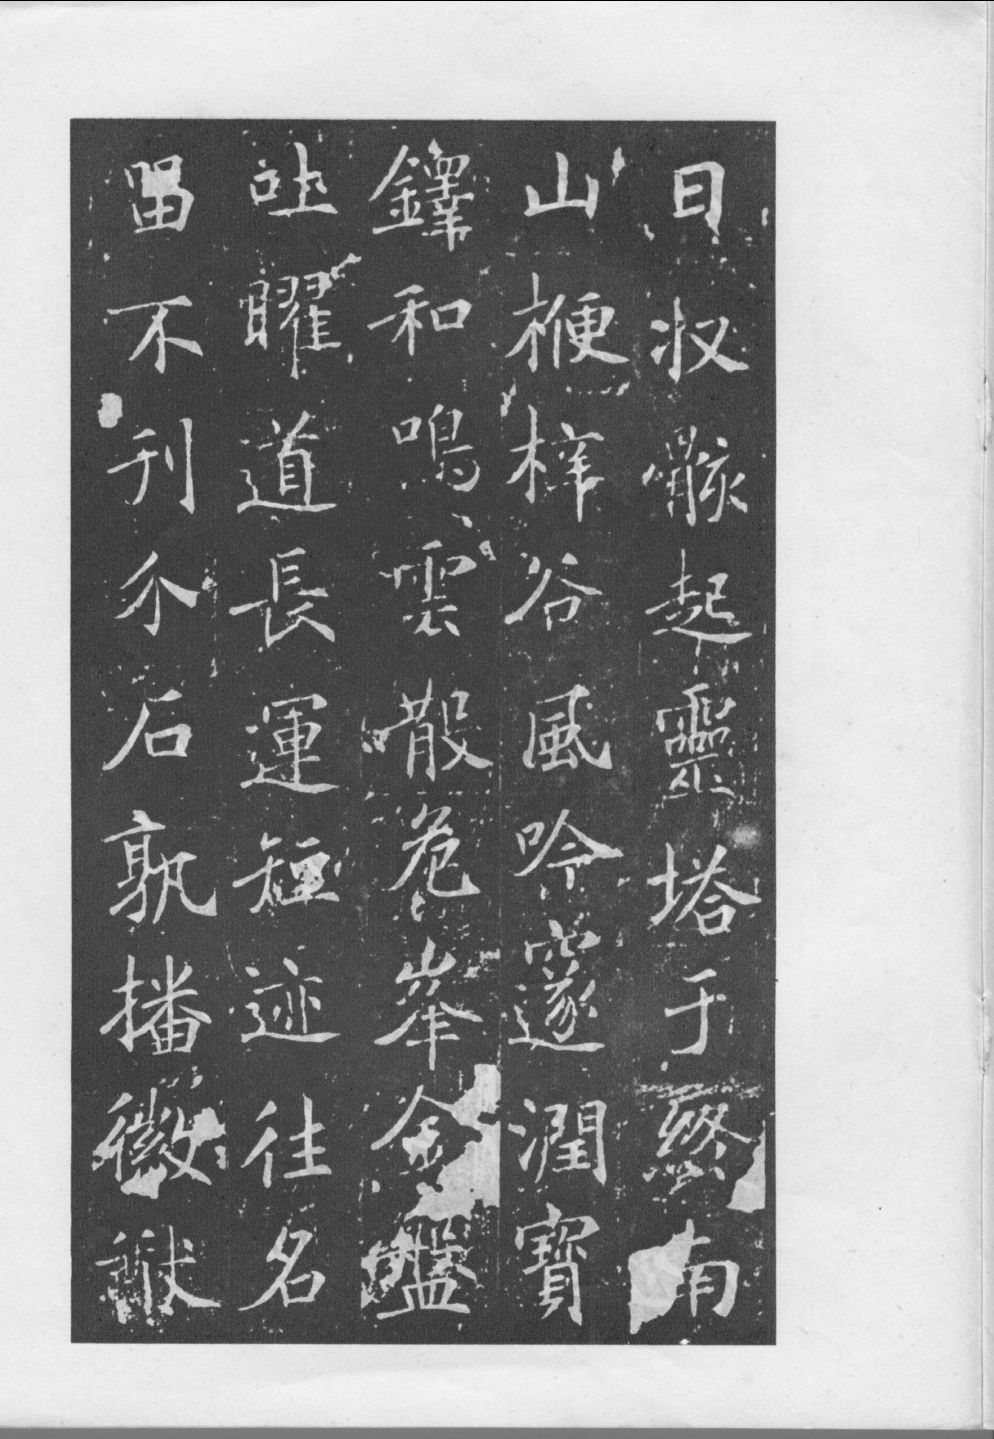 日収骸起靈塔于終南
山楩梓谷風吟邃澗寶
鐸和鳴雲散危峯金盤
吐曜道長運短迹往名
留不刊介石孰播徽猷